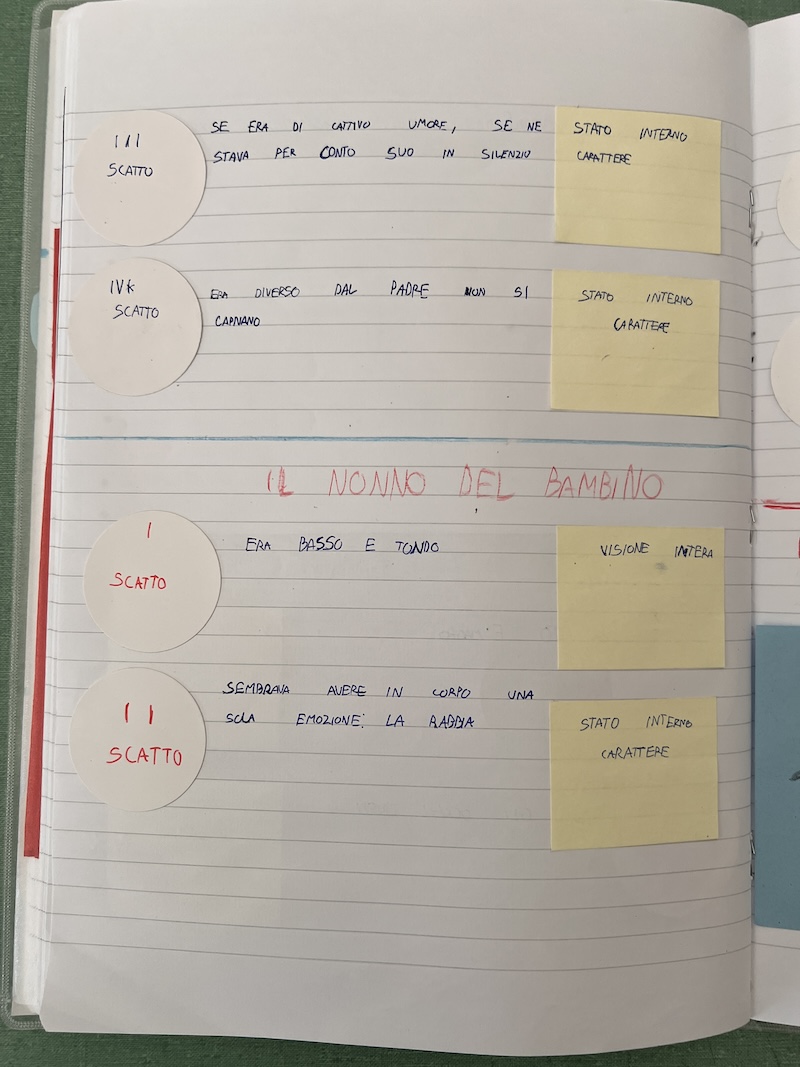 III
SCATTO
SE ERA DI CATTIVO UMORE, SE NE
STAVA PER CONTO SUO IN SILENZIO
STATO INTERNO
CARATTERE
IV*
SCATTO
ERA DIVERSO DAL PADRE NON SI
CAPIVANO
STATO INTERNO
CARATTERE
IL NONNO DEL BAMBINO
I
SCATTO
ERA BASSO E TONDO
VISIONE INTERA
II
SCATTO
SEMBRAVA AVERE IN CORPO UNA
SOLA EMOZIONE: LA RABBIA
STATO INTERNO
CARATTERE